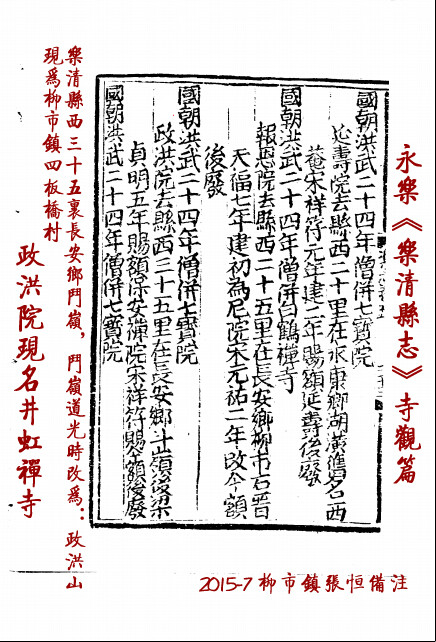 永樂《樂清縣志》寺觀篇
國朝洪武二十四年僧併七寶院
延壽院去縣西二十里在永康鄉湖橫舊名西
菴宋祥符元年建二年賜額延壽後廢
國朝洪武二十四年僧併白鶴禪寺
報恩院去縣西二十五里在長安鄉柳市石晉
天福七年建初為尼院宋元祐二年改今額
後廢
國朝洪武二十四年僧併七寶院
政洪院去縣西三十五里在長安鄉斗嶺後梁
貞明五年賜額保安禪院宋祥符賜今額後廢
國朝洪武二十四年僧併七寶院
樂清縣西三十五裏長安鄉鬥嶺，鬥嶺道光時改為：政洪山
現為柳市鎮四板橋村
政洪院現名井虹禪寺
2015-7柳市鎮張恒備注